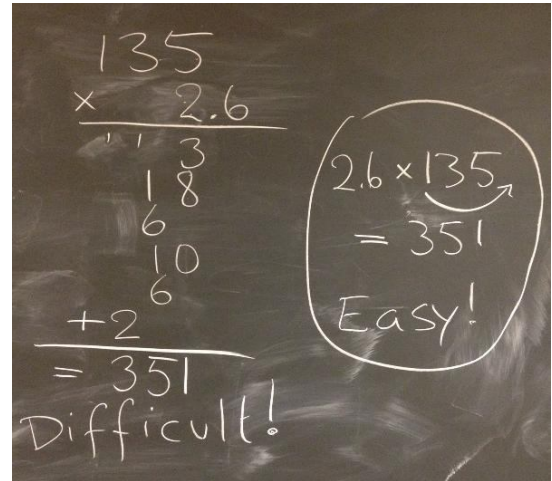 135
× 2.6
1 1 3
1 8
6
10
6
+2
= 351
Difficult!
2.6 × 135
= 351
Easy!